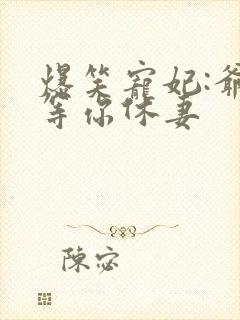 爆笑寵妃:爺
等你休妻
陳宓